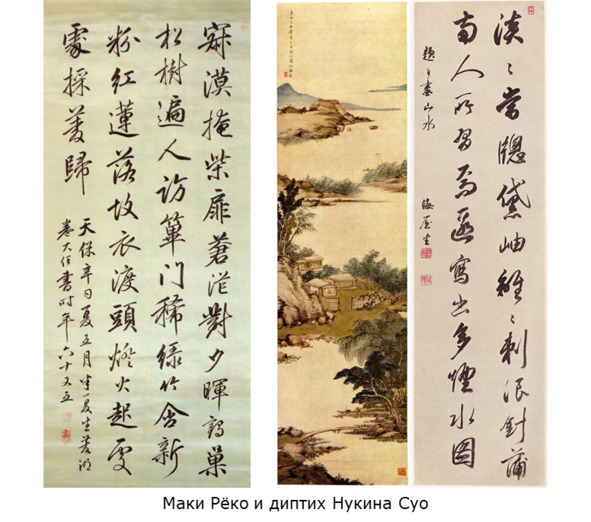 寂漠掩柴扉蒼茫對夕暉鶴巢
松樹遍人訪蓽門稀綠竹含新
粉紅蓮落故衣渡頭燈火起處
處採菱歸
天保辛丑夏五月半夏生菱湖
卷大任書時年六十又五
淡〻當牕黛岫〻刺浪針蒲
南人所習寫出多煙水図
題自畫山水
海屋生
Маки Рёко и диптих Нукина Суо